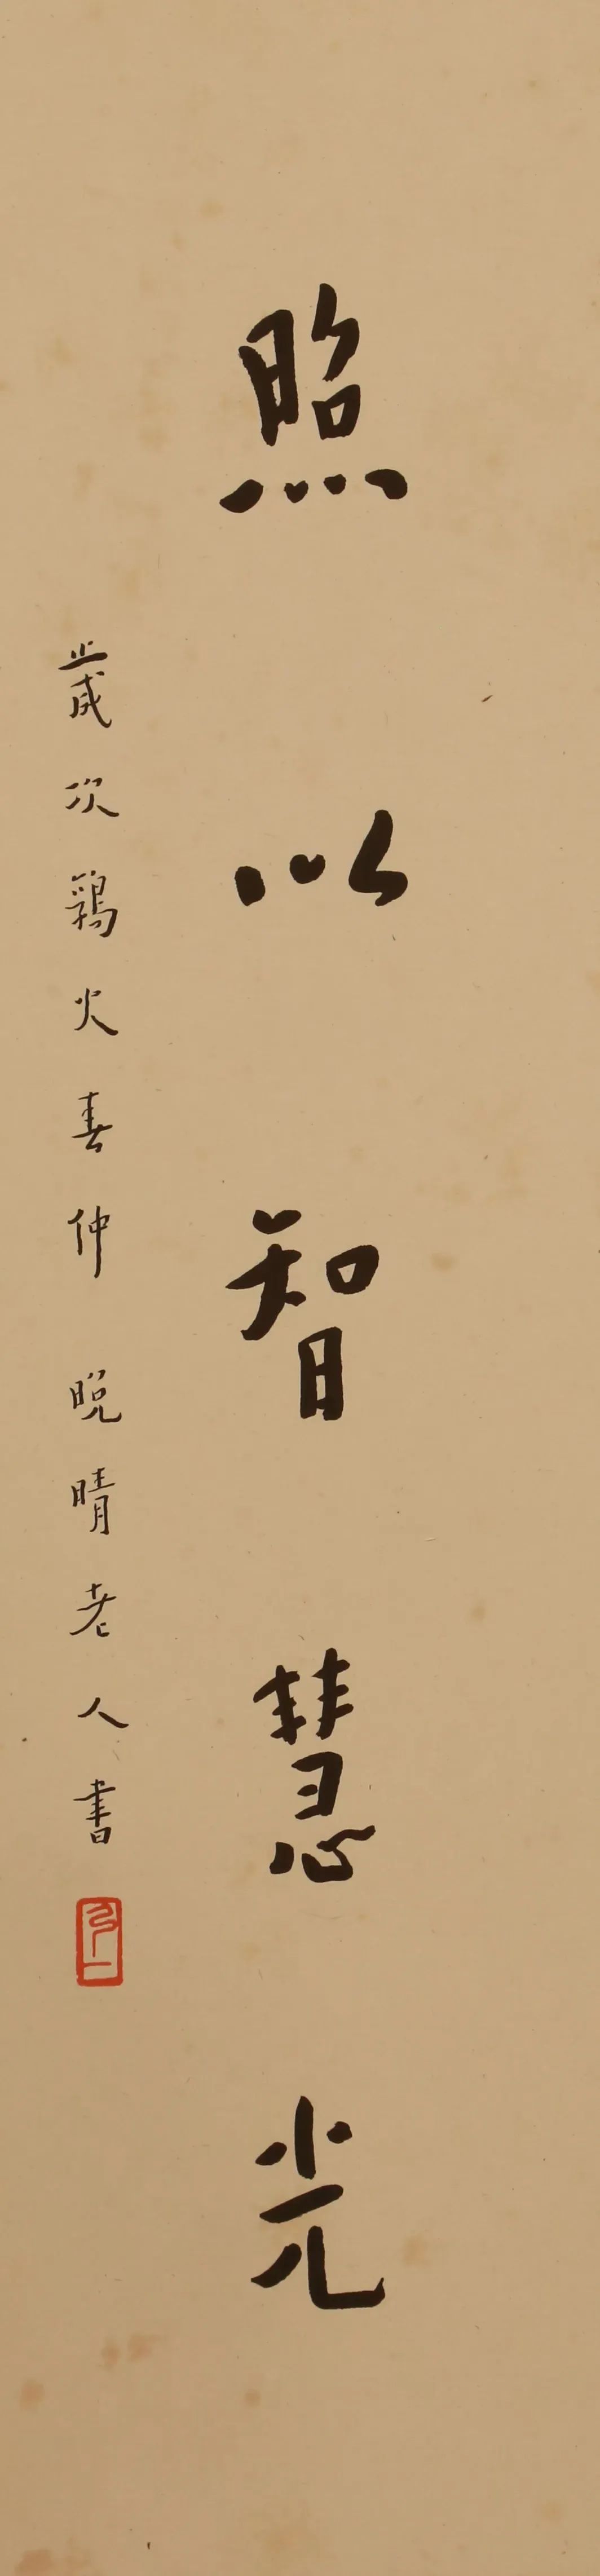 照以智慧光
歲次鶉火春仲 晚晴老人書